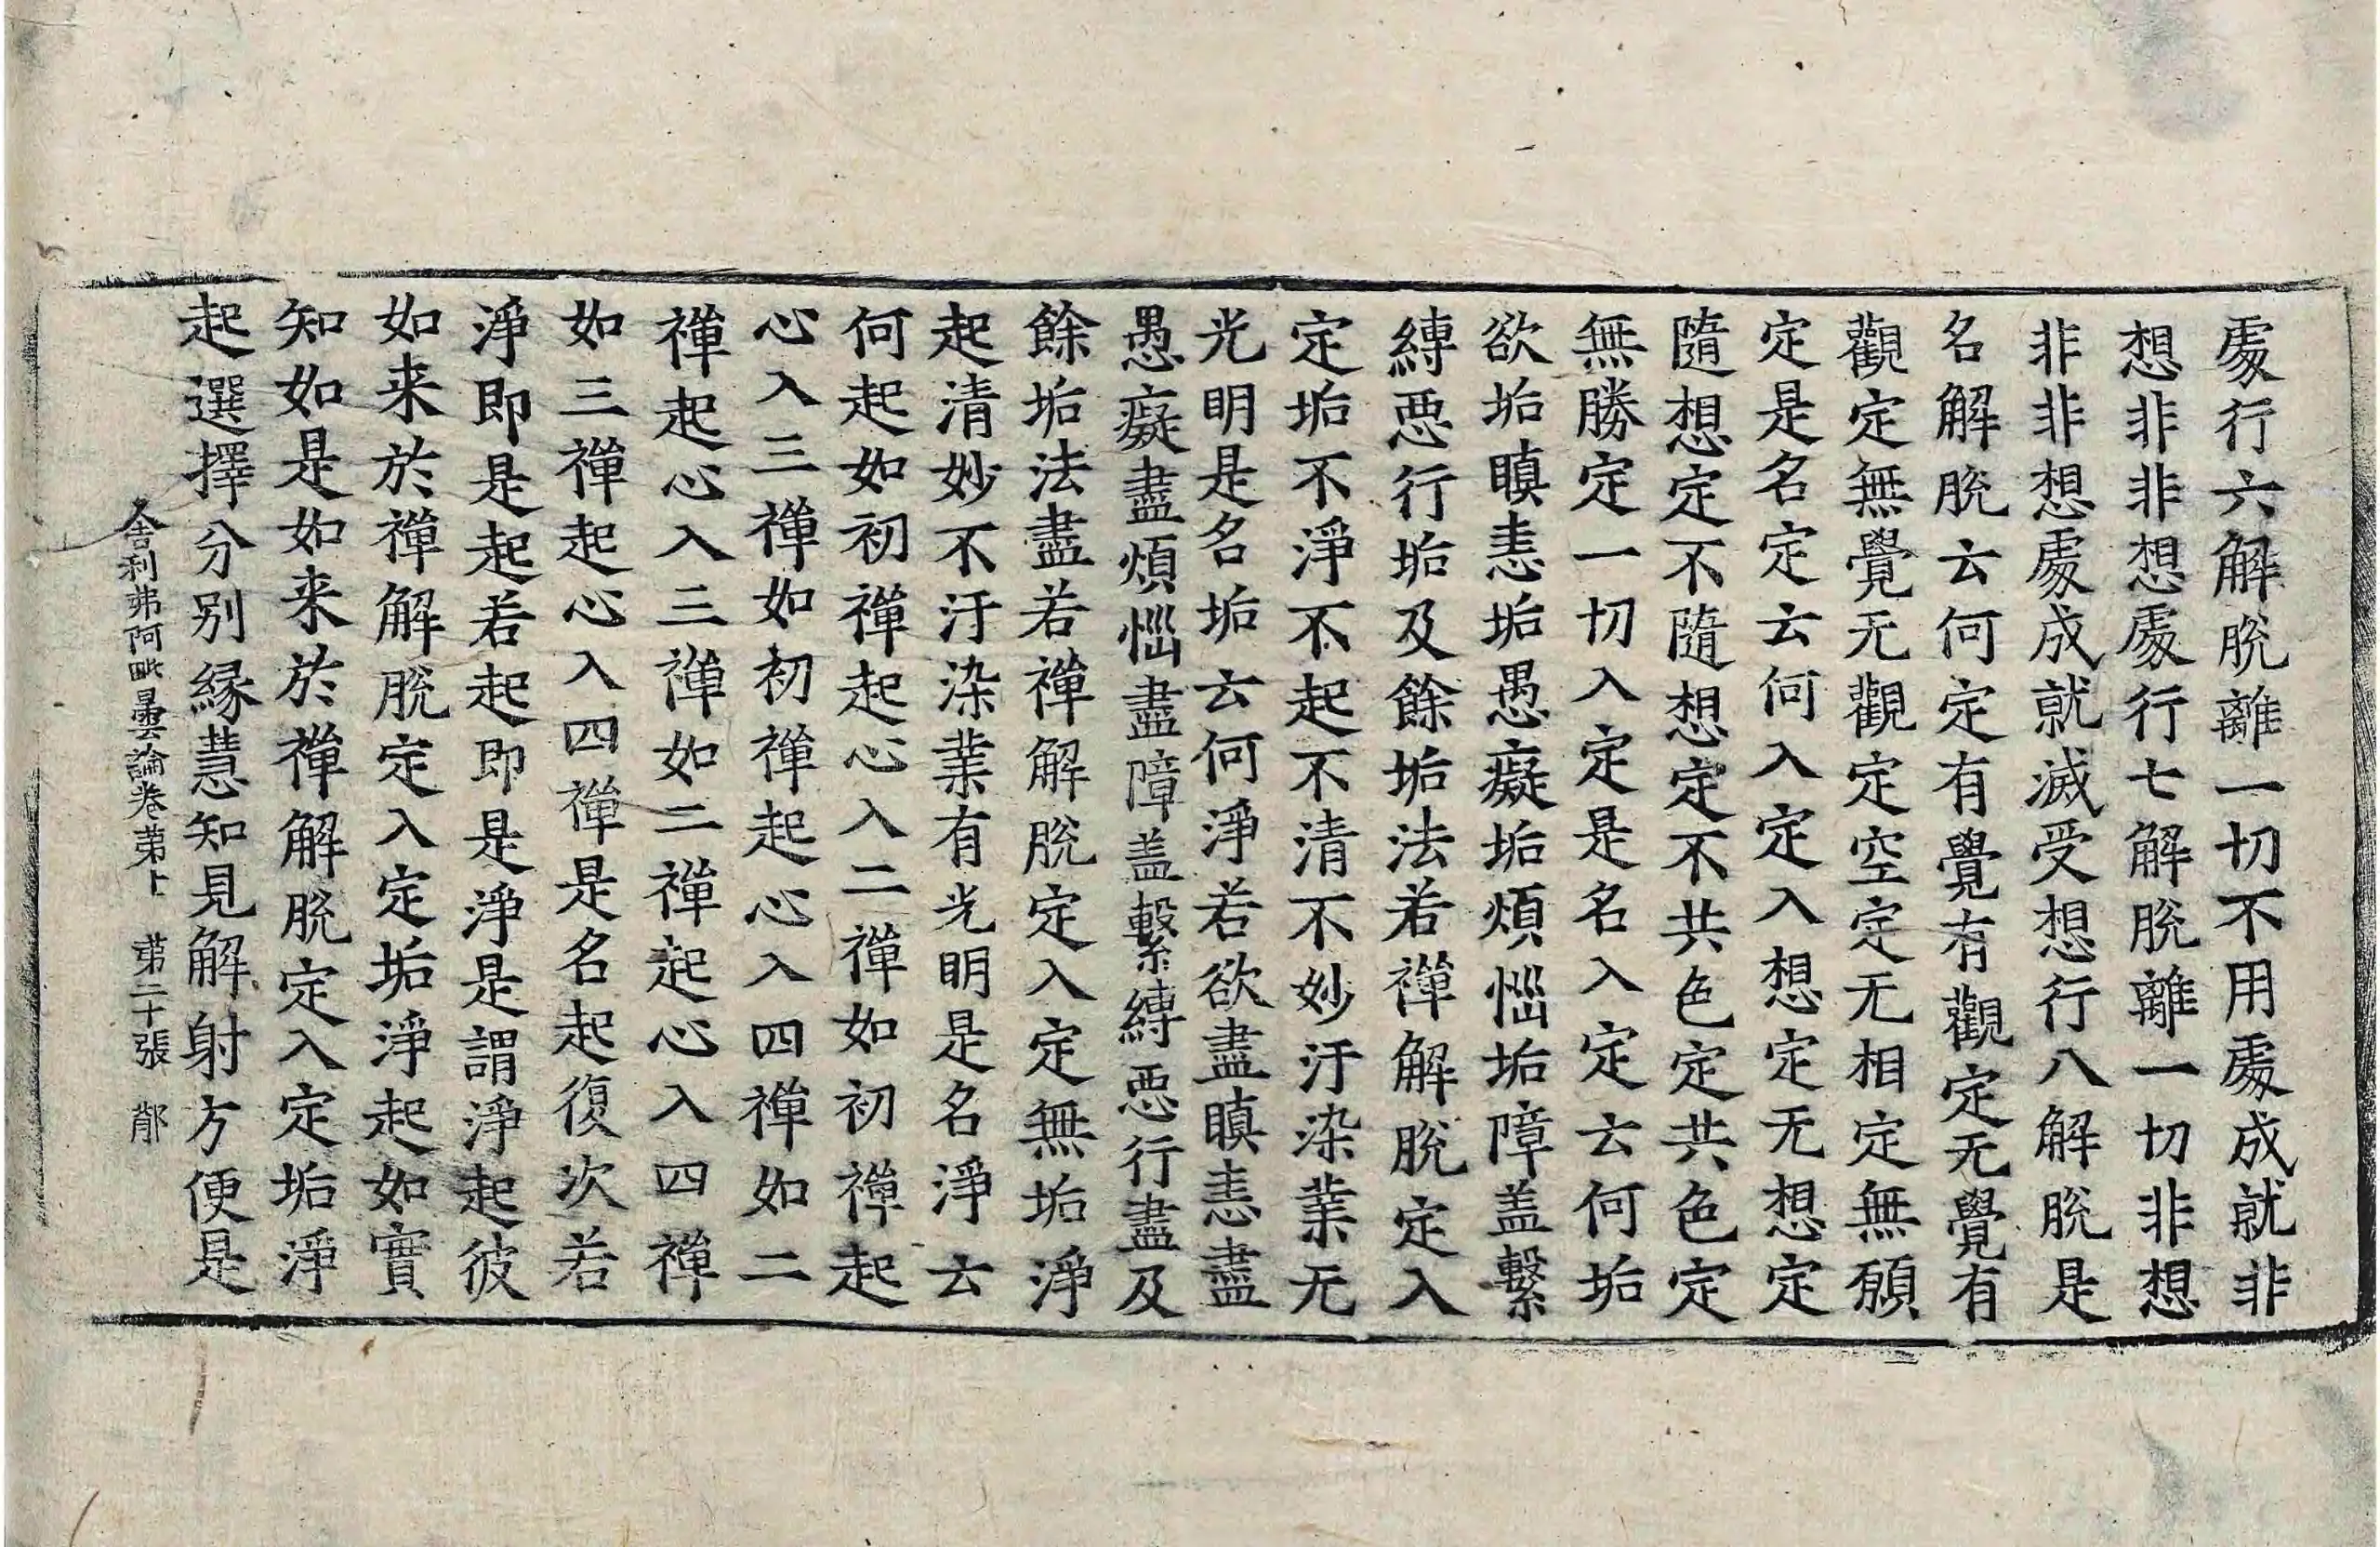 處行六解脫離一切不用處成就非
想非非想處行七解脫離一切非想
非非想處成就滅受想行八解脫是
名解脫云何定有覺有觀定无覺有
觀定無覺无觀定空定无相定無願
定是名定云何入定入想定无想定
隨想定不隨想定不共色定共色定
無勝定一切入定是名入定云何垢
欲垢瞋恚垢愚癡垢煩惱垢障盖繫
縛惡行垢及餘垢法若禪解脫定入
定垢不淨不起不清不妙汙染業无
光明是名垢云何淨若欲盡瞋恚盡
愚癡盡煩惱盡障盖繫縛惡行盡及
餘垢法盡若禪解脫定入定無垢淨
起清妙不汙染業有光明是名淨云
何起如初禪起心入二禪如初禪起
心入三禪如初禪起心入四禪如二
禪起心入三禪如二禪起心入四禪
如三禪起心入四禪是名起復次若
淨即是起若起即是淨是謂淨起彼
如来於禪解脫定入定垢淨起如實
知如是如来於禪解脫定入定垢淨
起選擇分别緣慧知見解射方便是
舍利弗阿毗曇論卷苐上 苐二十張 郁